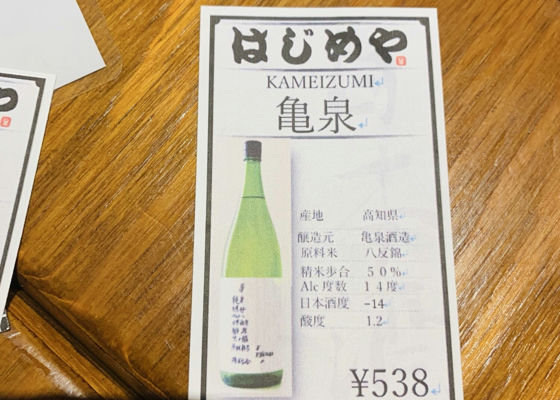 はじめや
KAMEIZUMI↵
亀泉↵
産地 高知県↵
醸造元 亀泉酒造↵
原料米 八反錦↵
精米歩合 50%↵
Alc度数 14度↵
日本酒度 -14↵
酸度 1.2↵
¥538↵
や